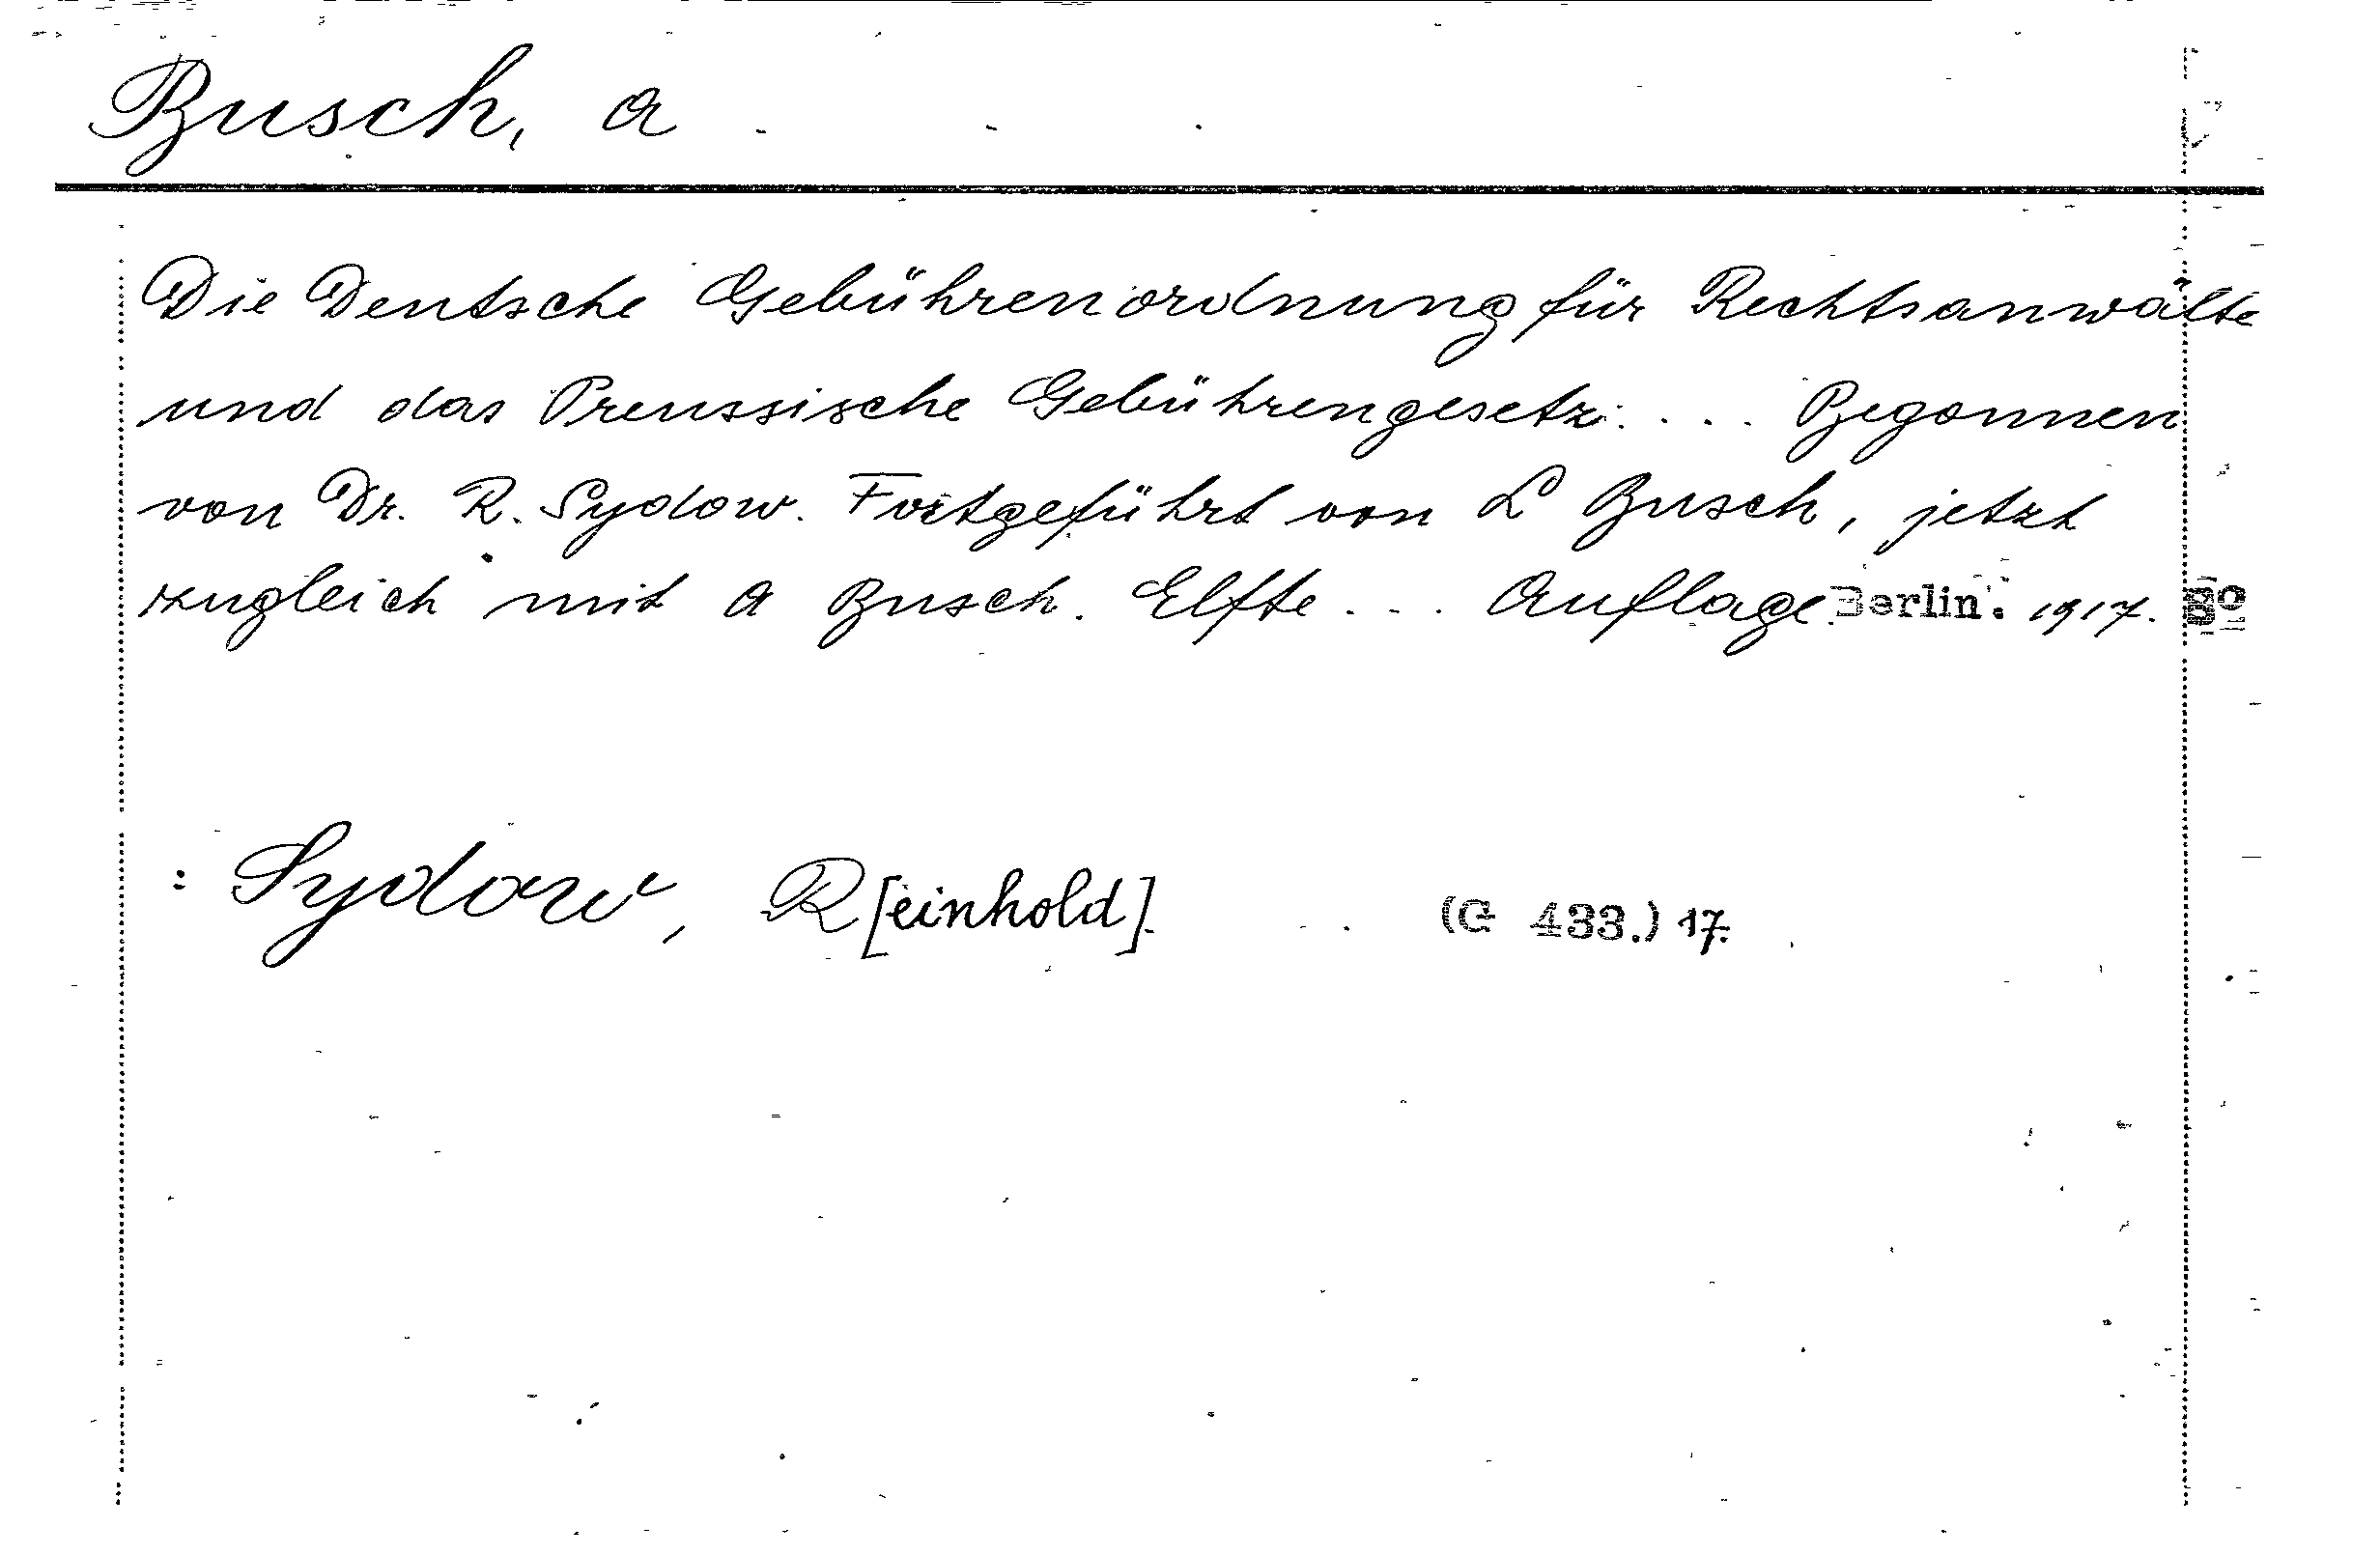 Busch, A
Die Deutsche Gebührenordnung für Rechtsanwälte
und das Preussische Gebührengesetz. . . . Begonnen
von Dr. R. Sydow. Fortgeführt von L Busch, jetzt
zugleich mit A Busch. Elfte . . . Auflage. Berlin. 1917. 8º
: Sydow, R[einhold]. (G 433.) 17.